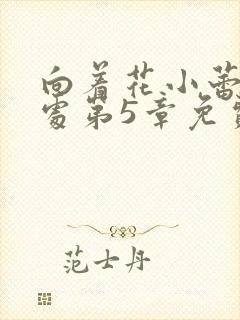 向着花小蕾
处第5章免费
范士丹